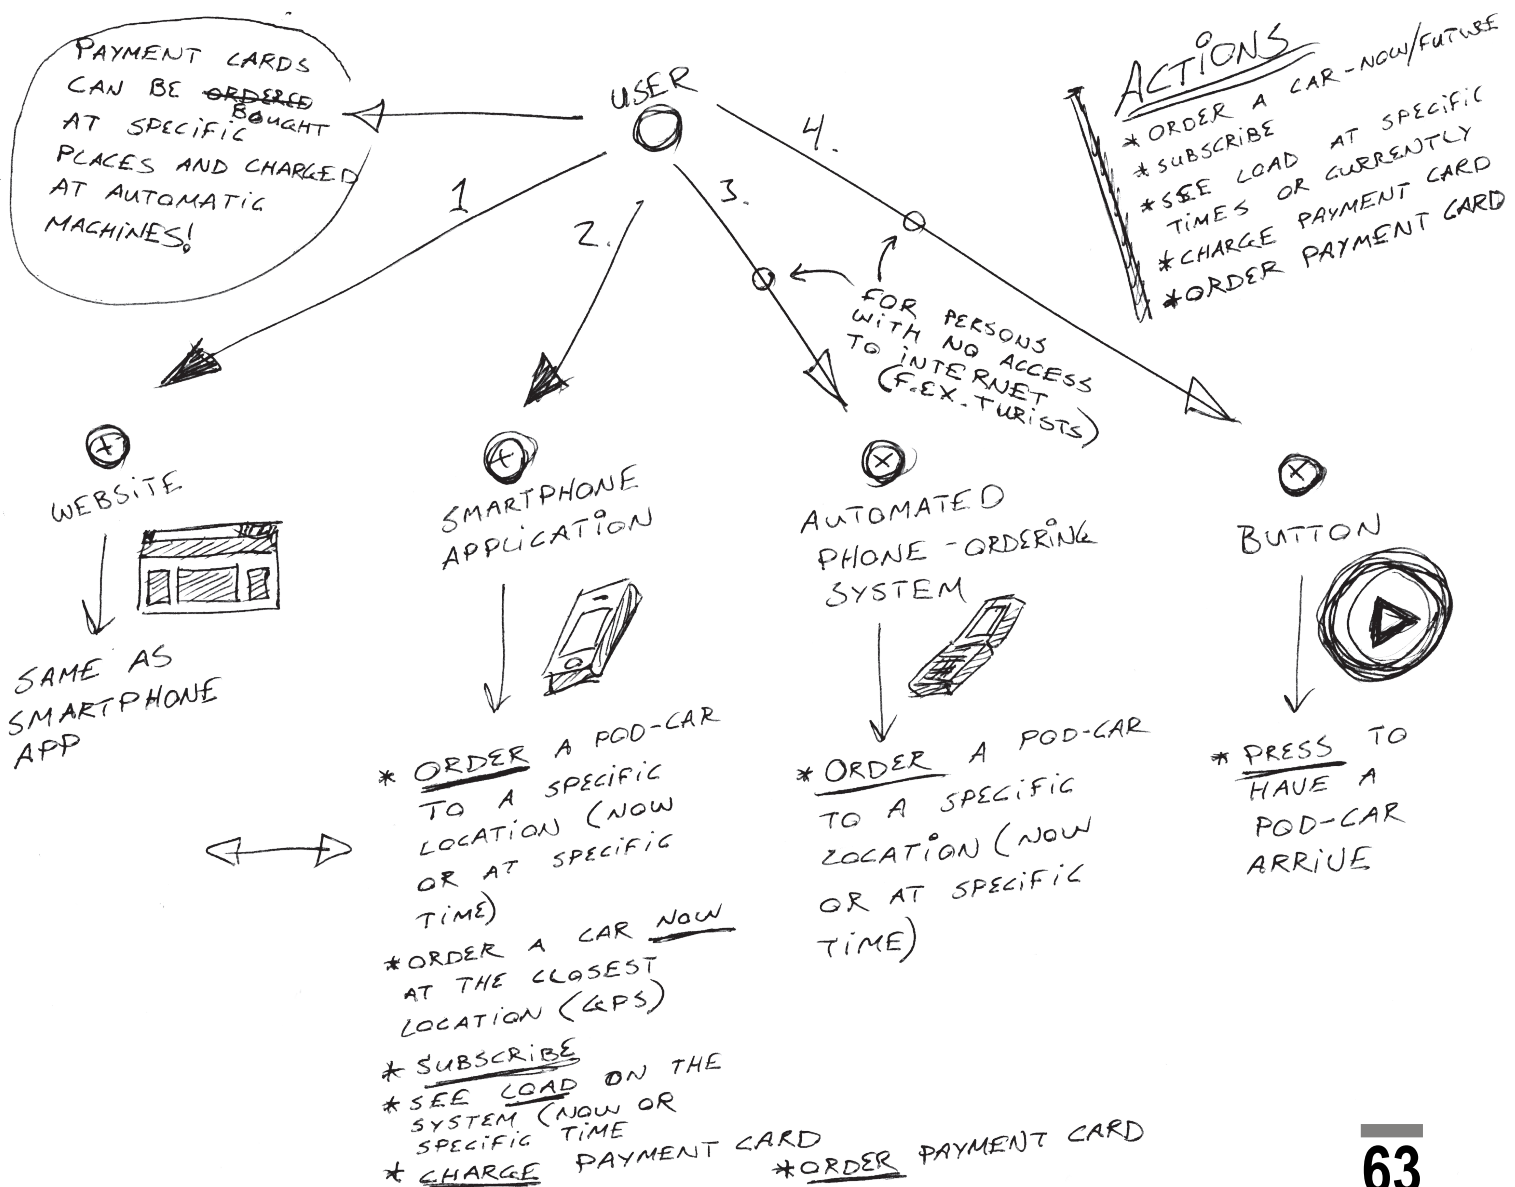 PAYMENT CARDS
CAN BE ORDERED
BOUGHT
AT SPECIFIC
PLACES AND CHARGED
AT AUTOMATIC
MACHINES!
USER
1
2.
3.
4.
FOR PERSONS
WITH NO ACCESS
TO INTERNET
(F.EX. TURISTS)
ACTIONS
* ORDER A CAR-NOW/FUTURE
* SUBSCRIBE
* SEE LOAD AT SPECIFIC
TIMES OR CURRENTLY
* CHARGE PAYMENT CARD
* ORDER PAYMENT CARD
WEBSITE
SAME AS
SMARTPHONE
APP
SMARTPHONE
APPLICATION
* ORDER A POD-CAR
TO A SPECIFIC
LOCATION (NOW
OR AT SPECIFIC
TIME)
* ORDER A CAR NOW
AT THE CLOSEST
LOCATION (GPS)
* SUBSCRIBE
* SEE LOAD ON THE
SYSTEM (NOW OR
SPECIFIC TIME
* CHARGE PAYMENT CARD
* ORDER PAYMENT CARD
AUTOMATED
PHONE-ORDERING
SYSTEM
* ORDER A POD-CAR
TO A SPECIFIC
LOCATION (NOW
OR AT SPECIFIC
TIME)
BUTTON
* PRESS TO
HAVE A
POD-CAR
ARRIVE
63